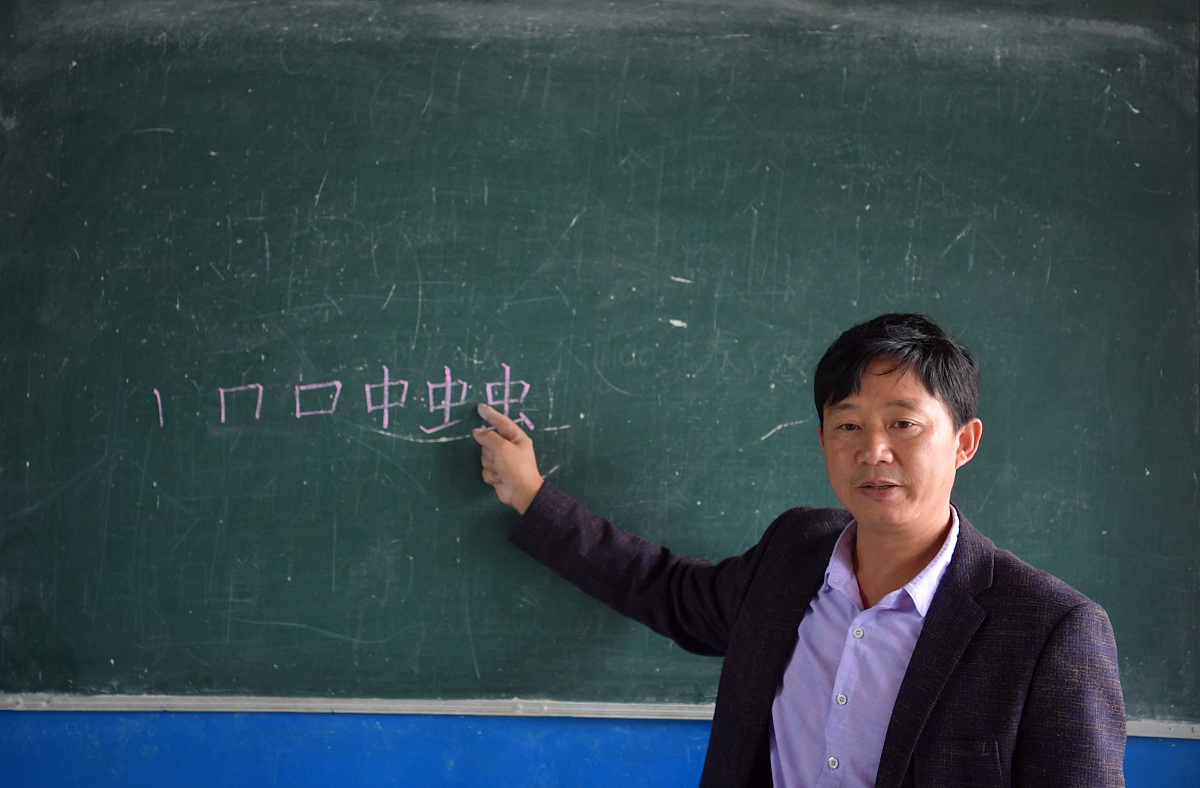 丨 冂 口 中 虫 虫